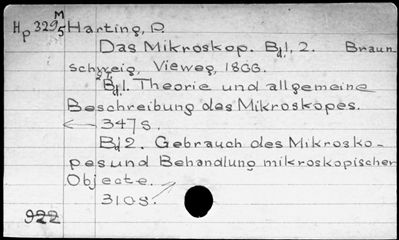 M
Hp 3295 Harting, P.
Das Mikroskop. Bd 1, 2. Braun-
schweig, Vieweg, 1866.
Bd 1. Theorie und allgemeine
Beschreibung des Mikroskopes.
347 S.
Bd 2. Gebrauch des Mikrosko-
pes und Behandlung mikroskopischer
Objecte.
310 S.
922